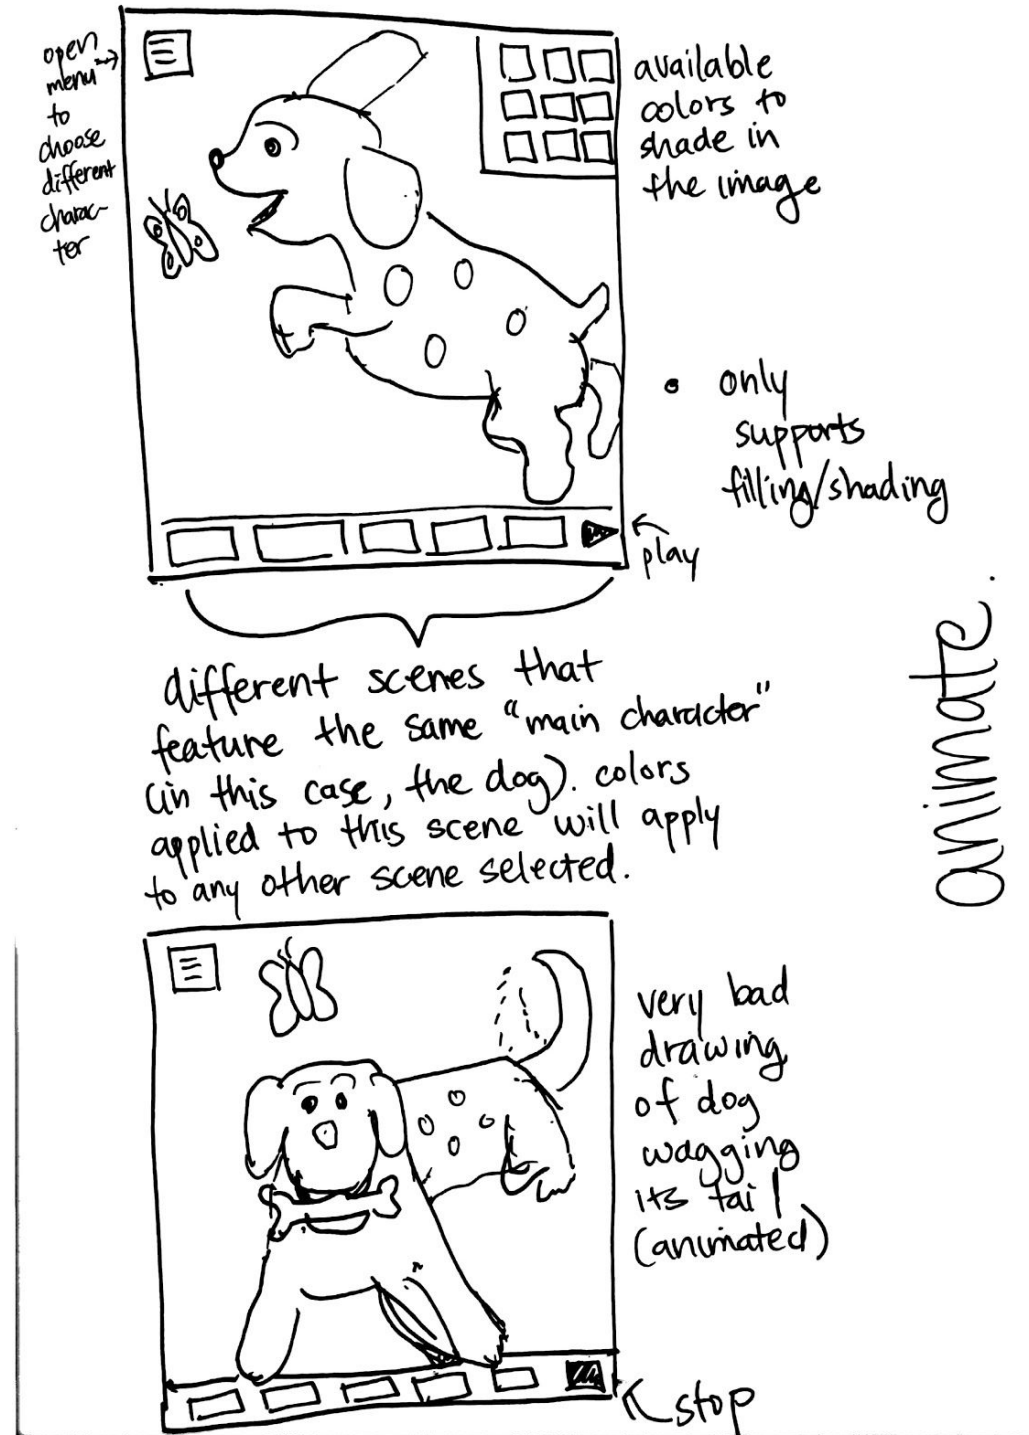 open
menu
to
choose
different
charac-
ter
available
colors to
shade in
the image
• only
supports
filling/shading
play
different scenes that
feature the same "main character"
(in this case, the dog). colors
applied to this scene will apply
to any other scene selected.
animate.
very bad
drawing
of dog
wagging
its tail
(animated)
stop